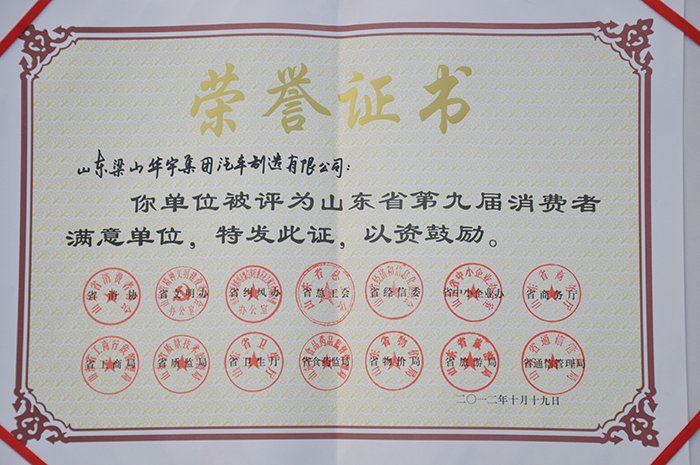 荣誉证书
山东梁山华宇集团汽车制造有限公司：
你单位被评为山东省第九届消费者
满意单位，特发此证，以资鼓励。
省消协 省文明办 省纠风办 省总工会 省经信委 省中小企业办 省商务厅
省工商局 省质监局 省卫生厅 省食药监局 省物价局 省旅游局 省通信管理局
二〇一二年十月十九日